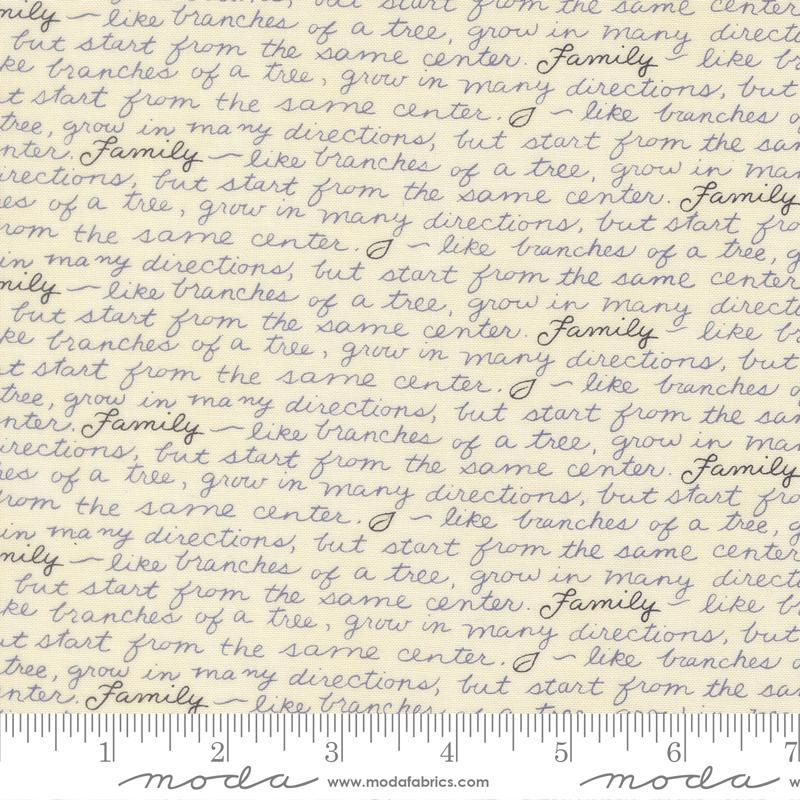 but start from the same center
mily – like branches of a tree, grow in many directi
but start from the same center. Family – like br
ke branches of a tree, grow in many directions, but
t start from the same center. – like branches o
tree, grow in many directions, but start from the sam
nter. Family – like branches of a tree, grow in man
irections, but start from the same center. Family
es of a tree, grow in many directions, but start fro
rom the same center. – like branches of a tree, g
in many directions, but start from the same center
mily – like branches of a tree, grow in many directi
but start from the same center. Family – like br
ke branches of a tree, grow in many directions, but
t start from the same center. – like branches o
tree, grow in many directions, but start from the sam
nter. Family – like branches of a tree, grow in man
irections, but start from the same center. Family
hes of a tree, grow in many directions, but start fro
from the same center. – like branches of a tree, g
in many directions, but start from the same center
mily – like branches of a tree, grow in many directi
but start from the same center. Family – like br
ke branches of a tree, grow in many directions, but
ut start from the same center. – like branches o
tree, grow in many directions, but start from the sam
nter. Family – like branches
1 2 3 4 5 6 7
moda www.modafabrics.com moda w